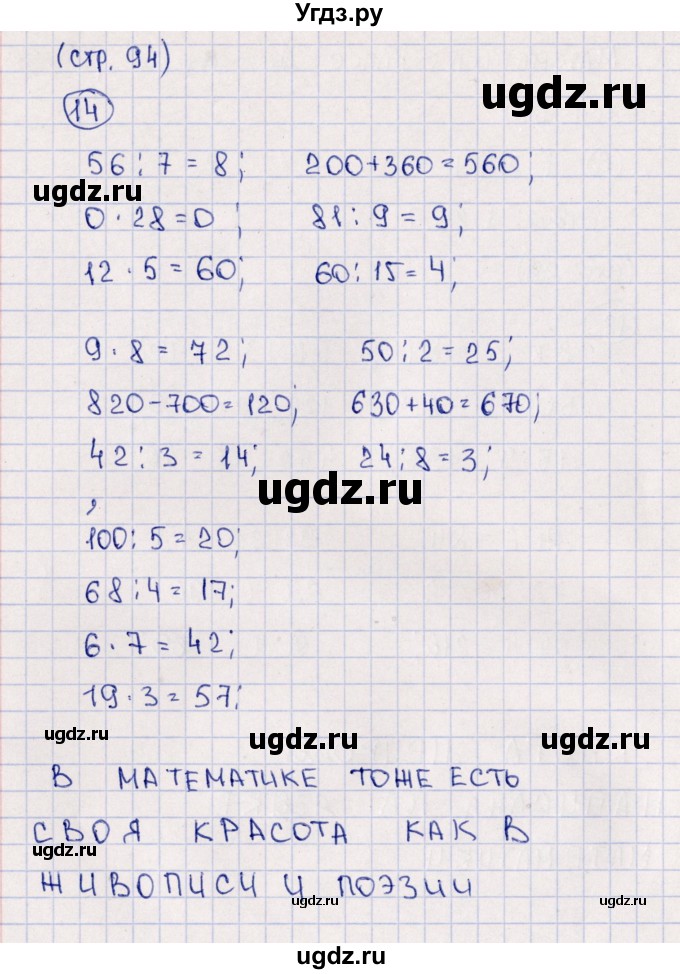 Угдз.ру
(стр. 94)
ugdz.ru
14
56 : 7 = 8; 200+360=560;
ugdz.ru
0 · 28=0 ; 81 : 9 = 9;
12 · 5 = 60; 60 : 15 = 4;
9 · 8 = 72; 50 : 2 = 25;
820-700=120; 630+40=670;
42 : 3 = 14; 24 : 8 = 3;
ugdz.ru
,
100 : 5 = 20;
68 : 4 = 17;
6 · 7 = 42;
19 · 3 = 57;
ugdz.ru ugdz.ru ugdz.ru
В МАТЕМАТИКЕ ТОЖЕ ЕСТЬ
СВОЯ КРАСОТА КАК В
ugdz.ru
ЖИВОПИСИ И ПОЭЗИИ
ugdz.ru ugdz.ru
ugdz.ru